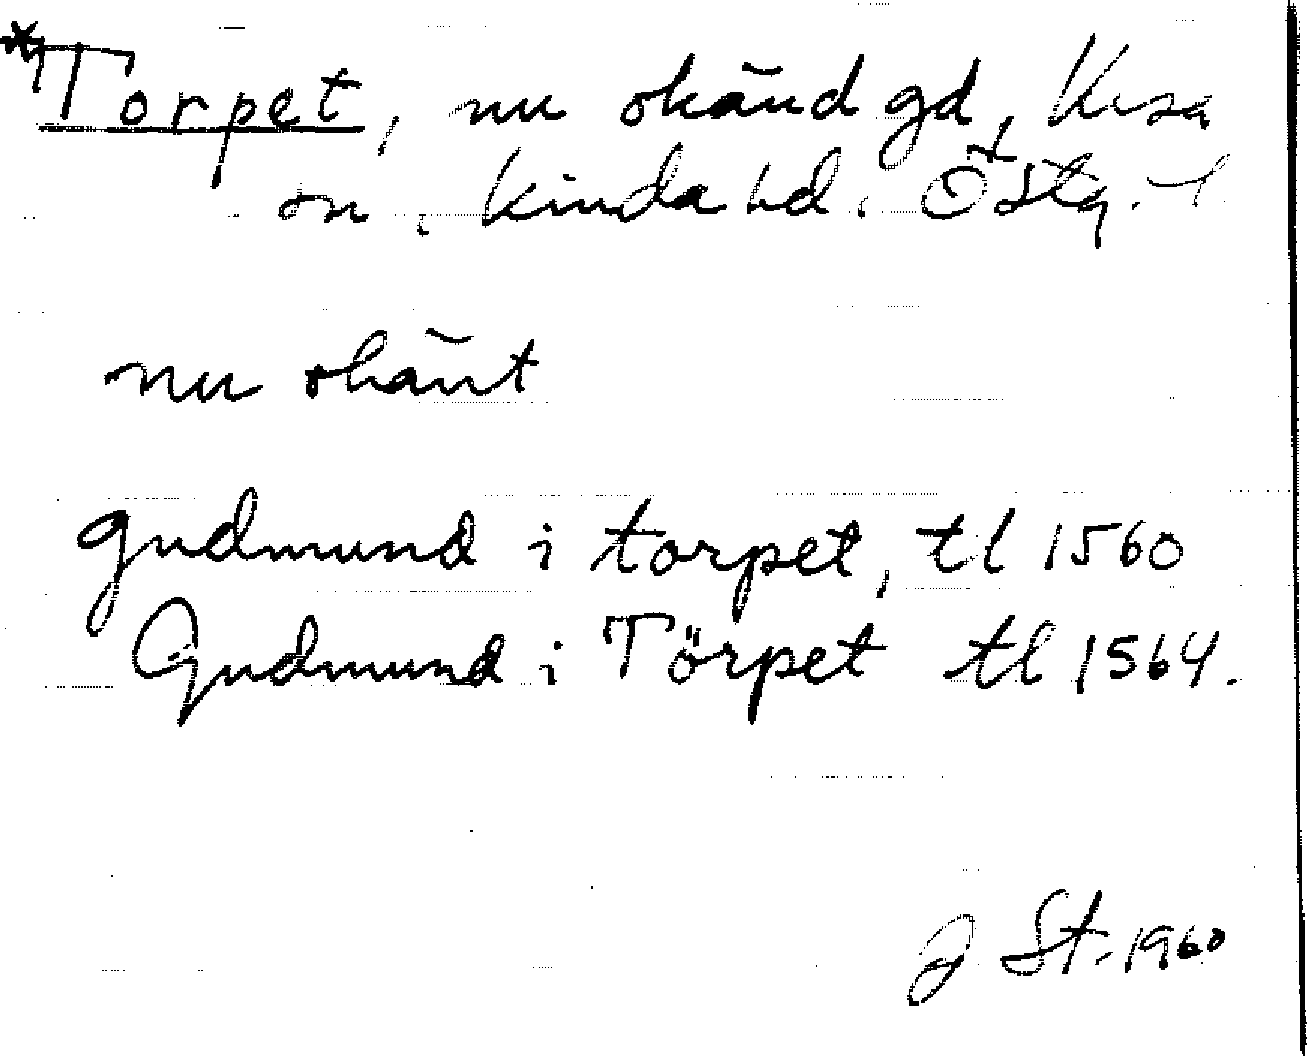 *Torpet, nu okänd gd, Kisa
sn, Kinda hd. Östg. l
nu okänt
gudmund i torpet, tl 1560
Gudmund i Törpet tl 1564.
J St. 1960